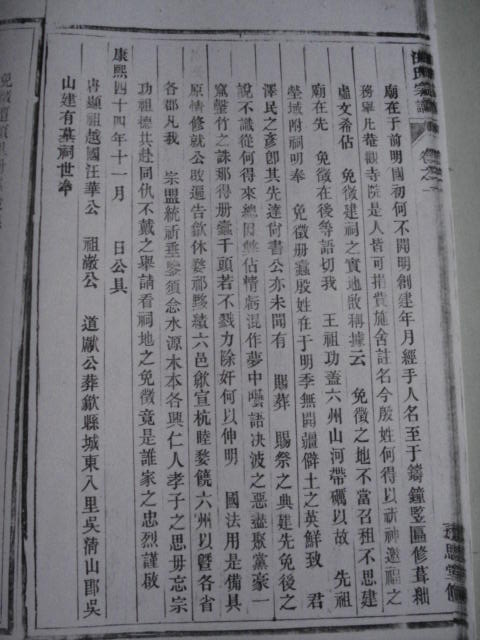 汪氏宗譜
卷之
廟在于前明國初何不開明創建年月經手人名至于鑄鐘豎區修葺
務畢凡菴觀寺院是人皆可捐貲施舍註名今殷姓何得以祈神邀福之
虛文希佔 免徵建祠之實地敢稱據云 免徵之地不當召租不思建
廟在先 免徵在後等語切我 王祖功蓋六州山河帶礪以故 先祖
塋域附祠明奉 免徵册蠹殷姓在于明季無開疆僻土之英鮮致 君
澤民之彥卽其先達尙書公亦未聞有 賜葬 賜祭之典建先免後之
說不識從何得來總因無佔情虧混作夢中囈語决波之惡盡聚黨豪一
窩罄竹之誅那得册蠹千頭若不戮力除奸何以伸明 國法用是備具
原情修就公敀遍告歙休婺祁黟績六邑歙宣杭睦婺饒六州以曁各省
各郡凡我 宗盟統祈垂鑒須念水源木本各興仁人孝子之思毋忘宗
功祖德共赴同仇不戴之舉請看祠地之免徵竟是誰家之忠烈謹啟
康熙四十四年十一月 日公具
唐顯祖越國汪華公 祖 公 道獻公葬歙縣城東八里吳清山鄭吳
山建有墓祠世奉